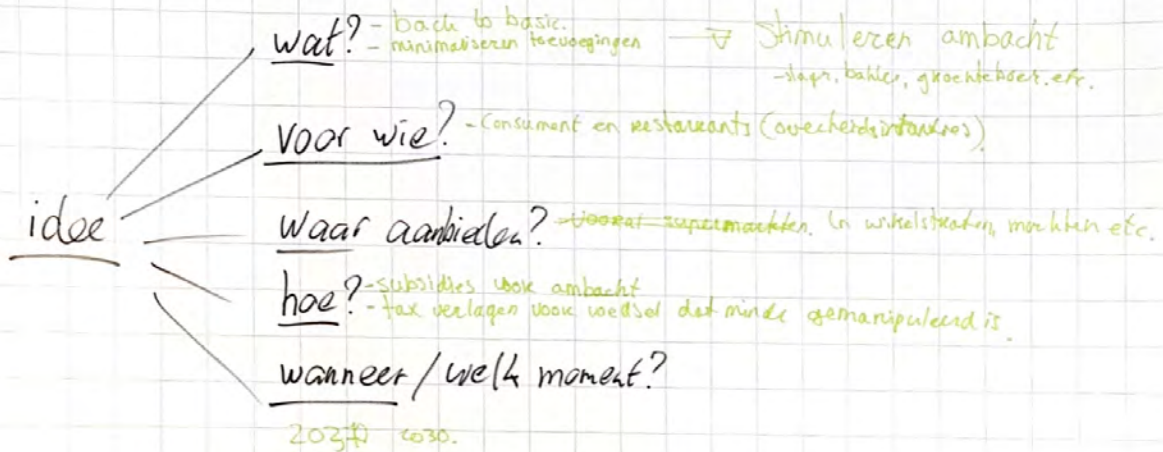 wat? - back to basic.
- minimaliseren toevoegingen → Stimuleren ambacht
- slager, bakker, groenteboer. etc.
voor wie? - Consument en restaurants
idee
waar aanbieden? - vooral supermarkten. In winkelstraten, markten etc.
hoe? - subsidies voor ambacht
- tax verlagen voor voedsel dat minde gemanipuleerd is.
wanneer / welk moment?
2030.